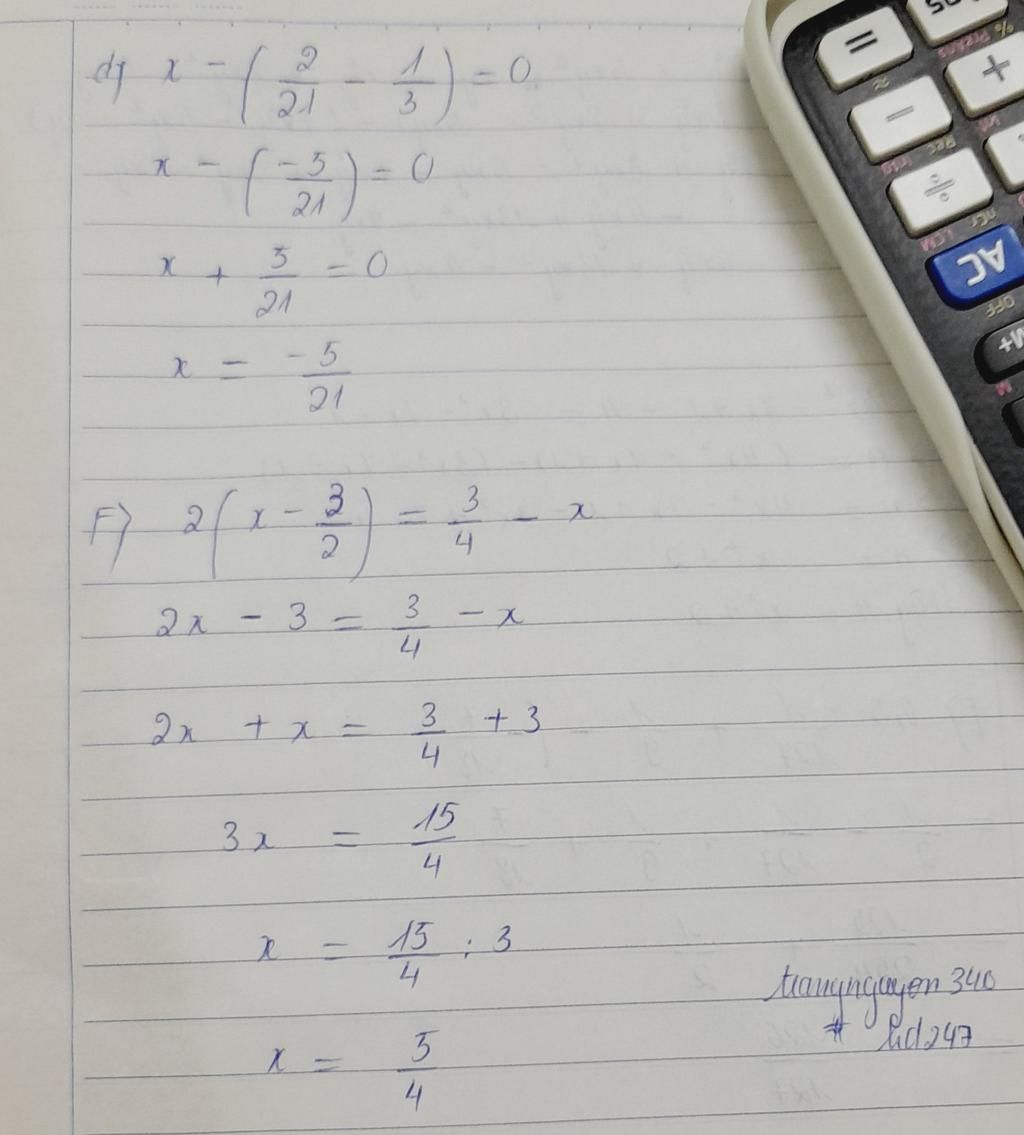 d) x - (2/21 - 1/3) = 0
x - (-5/21) = 0
x + 5/21 = 0
x = -5/21
F) 2(x - 3/2) = 3/4 - x
2x - 3 = 3/4 - x
2x + x = 3/4 + 3
3x = 15/4
x = 15/4 : 3
x = 5/4
trangnguyen 340
# hd247
=
+
−
÷
AC
OFF
M+
M